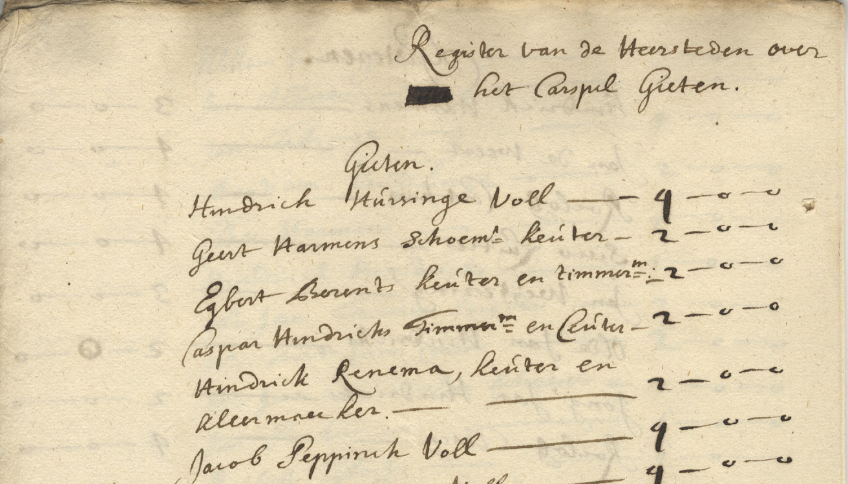 Register van de Heersteden over
het Carspel Gieten.
Gieten.
Hindrick Huisinge Voll — 4 — 0 — 0
Geert Harmens Schoemr keuter — 2 — 0 — 0
Egbert Berents keuter en timmerm: 2 — 0 — 0
Caspar Hindricks Timmerm en Ceuter — 2 — 0 — 0
Hindrick Renema, keuter en
kleermaecker. — 2 — 0 — 0
Jacob Peppinck Voll — 4 — 0 — 0
4 — 0 — 0